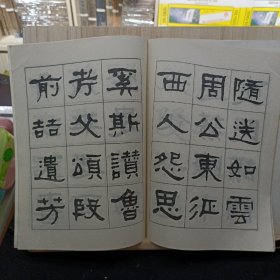 隨送如雲
周公東征
西人怨思
奚斯讚魯
考父頌殷
前喆遺芳